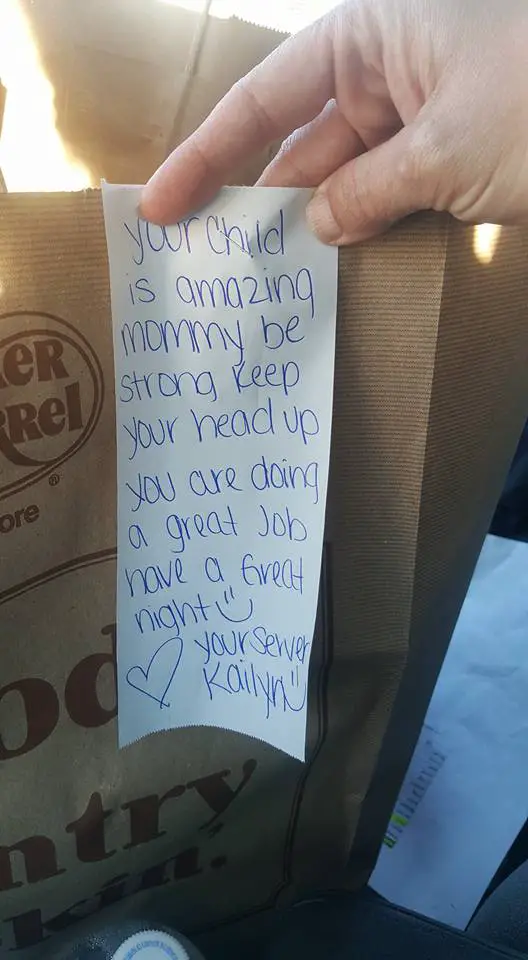 your child
is amazing
mommy be
strong keep
your head up
you are doing
a great Job
have a Great
night
your server
Kailyn
ER
RRel
ore ®
od
ntry
kin.